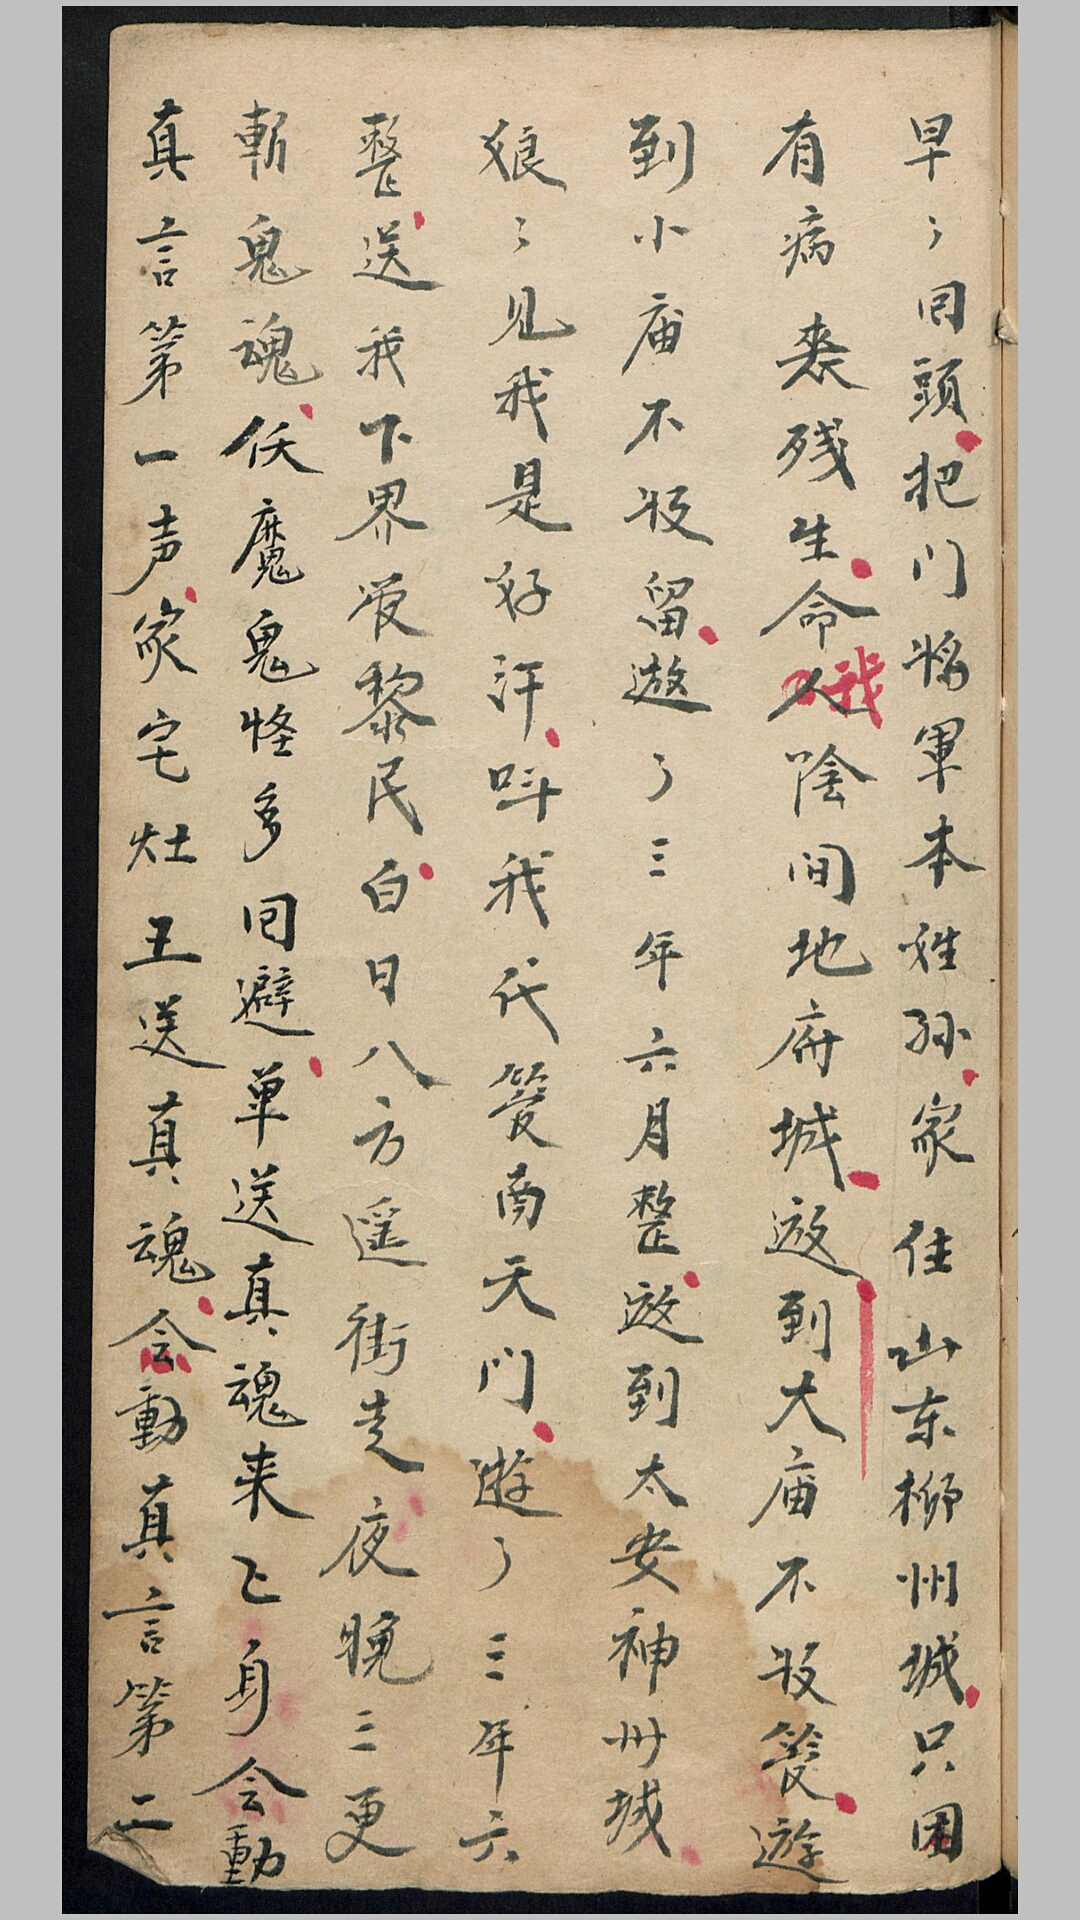 早〻回頭把门将軍本姓孙家住山东柳州城只因
有病丧残生命人我陰间地府城遊到大庙不收管遊
到小庙不收留遊了三年六月整遊到太安神州城
娘〻见我是好汗叫我代管南天门遊了三年六
整送我下界管黎民白日八方遥街走夜晚三更
斬鬼魂妖魔鬼怪多回避单送真魂来上身会動
真言第一声家宅灶王送真魂会動真言第二